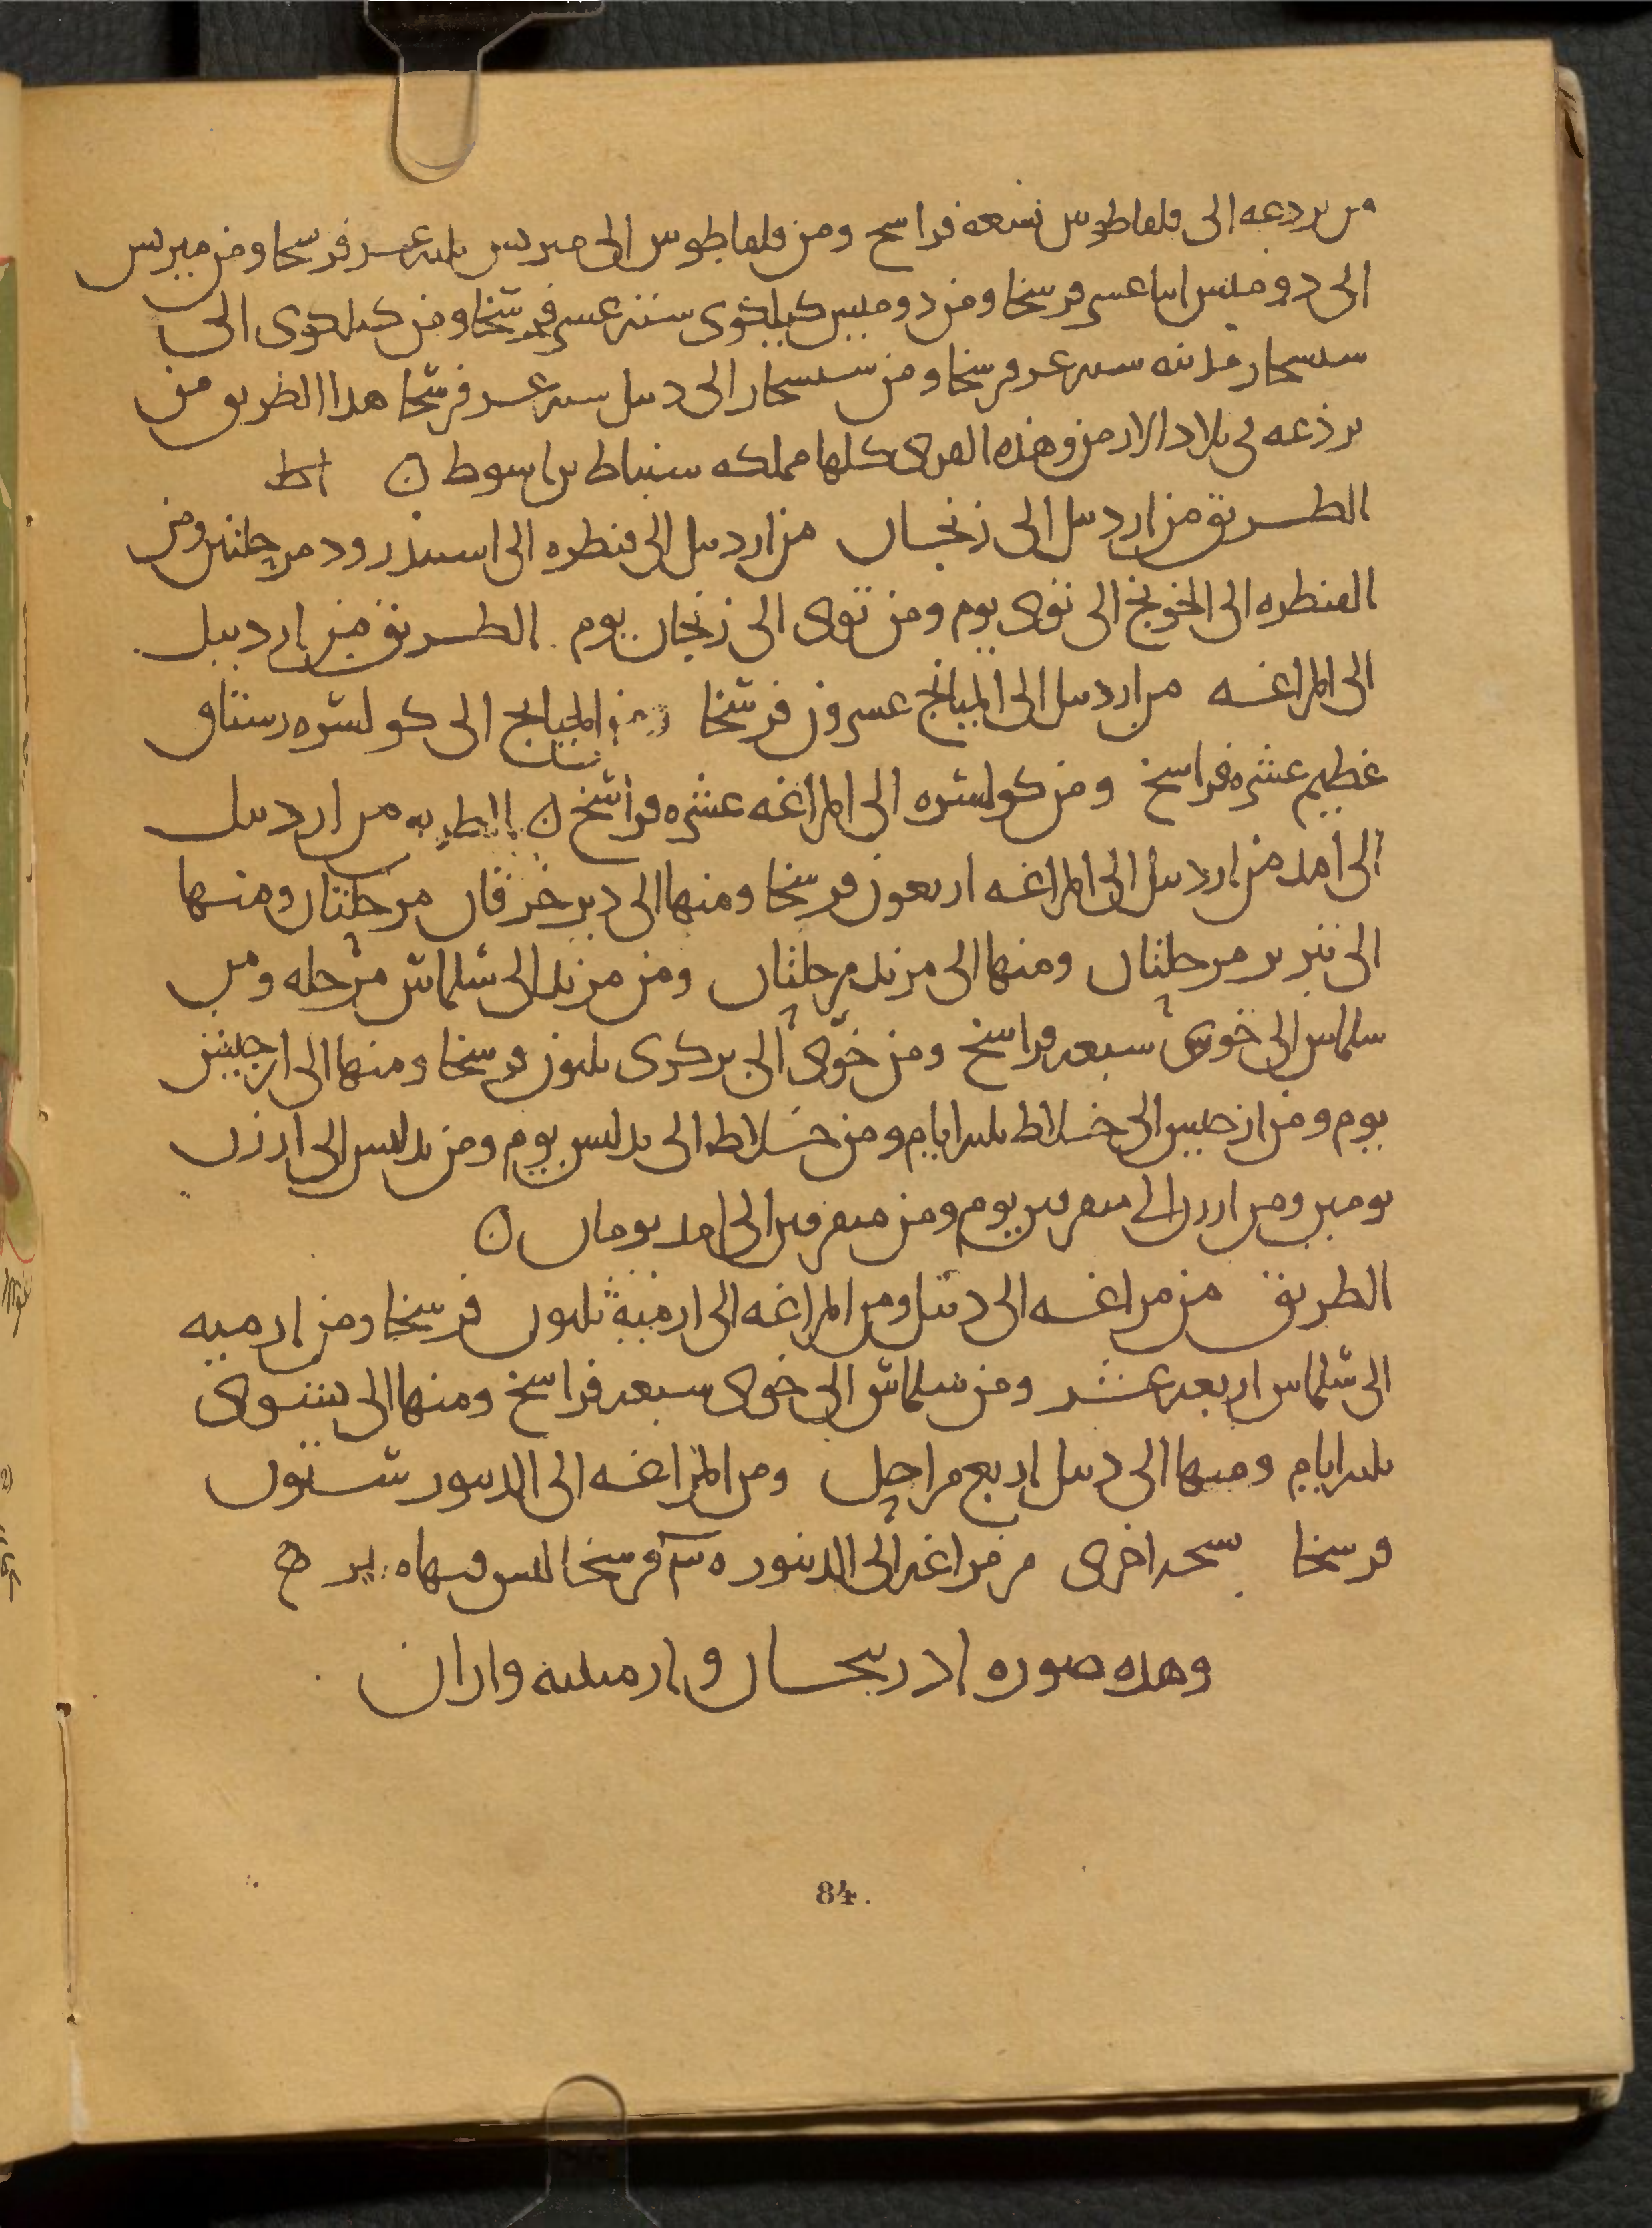 من بردعه الى قلقاطوس تسعه فراسخ ومن قلقاطوس الى متريس ثلثه عشر فرسخا ومن متريس
الى دوميس اثنا عشر فرسخا ومن دوميس كيلكوى ستة عشر فرسخا ومن كيلكوى الى
سيسجار مدينه سته عشر فرسخا ومن سيسجار الى دبيل سته عشر فرسخا هذا الطريق من
برذعه فى بلاد الارمن وهذه القرى كلها مملكه سنباط بن اسوط
الطريق من اردبيل الى زنجان من اردبيل الى قنطره الى اسبيذرود مرحلتين ومن
القنطره الى الخونج الى نوى يوم ومن نوى الى زنجان يوم الطريق من اردبيل
الى المراغه من اردبيل الى الميانج عشرون فرسخا ومن الميانج الى كولسره رستاق
عظيم عشره فراسخ ومن كولسره الى المراغه عشره فراسخ الطريق من اردبيل
الى امد من اردبيل الى المراغه اربعون فرسخا ومنها الى دير خرقان مرحلتان ومنها
الى تبريز مرحلتان ومنها الى مرند مرحلتان ومن مرند الى سلماس مرحله ومن
سلماس الى خوى سبعه فراسخ ومن خوى الى بركرى ثلثون فرسخا ومنها الى ارجيش
يوم ومن ارجيس الى خلاط ثلثه ايام ومن خلاط الى بدليس يوم ومن بدليس الى ارزن
يومين ومن ارزن الى ميفرقين يوم ومن ميفرقين الى امد يومان
الطريق من مراغه الى دبيل ومن المراغه الى ارمية ثلثون فرسخا ومن ارميه
الى سلماس اربعه عشر ومن سلماس الى خوى سبعه فراسخ ومنها الى نشوى
ثلثه ايام ومنها الى دبيل اربع مراحل ومن المراغه الى الدينور ستون
فرسخا نسخه اخرى من مراغه الى الدينور فرسخا ليس فيها
وهذه صوره اذربيجان وارمينيه واران
84.